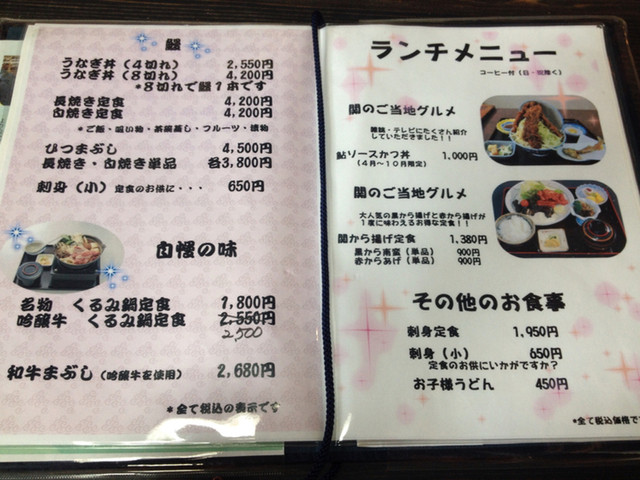 鰻
うなぎ丼（４切れ） 2,550円
うなぎ丼（８切れ） 4,200円
*８切れで鰻１本です
長焼き定食 4,200円
白焼き定食 4,200円
*ご飯・吸い物・茶碗蒸し・フルーツ・漬物
ひつまぶし 4,500円
長焼き・白焼き単品 各3,800円
刺身（小）定食のお供に・・・ 650円
自慢の味
名物 くるみ鍋定食 1,800円
吟醸牛 くるみ鍋定食 2,550円
2,500
和牛まぶし（吟醸牛を使用） 2,680円
*全て税込の表示です
ランチメニュー
コーヒー付（日・祝除く）
関のご当地グルメ
雑誌・テレビにたくさん紹介
していただきました！！
鮎ソースかつ丼 1,000円
（４月～１０月限定）
関のご当地グルメ
大人気の黒から揚げと赤から揚げが
１度に味わえるお得な定食！！
関から揚げ定食 1,380円
黒から南蛮（単品） 900円
赤からあげ（単品） 900円
その他のお食事
刺身定食 1,950円
刺身（小） 650円
定食のお供にいかがですか？
お子様うどん 450円
*全て税込価格で